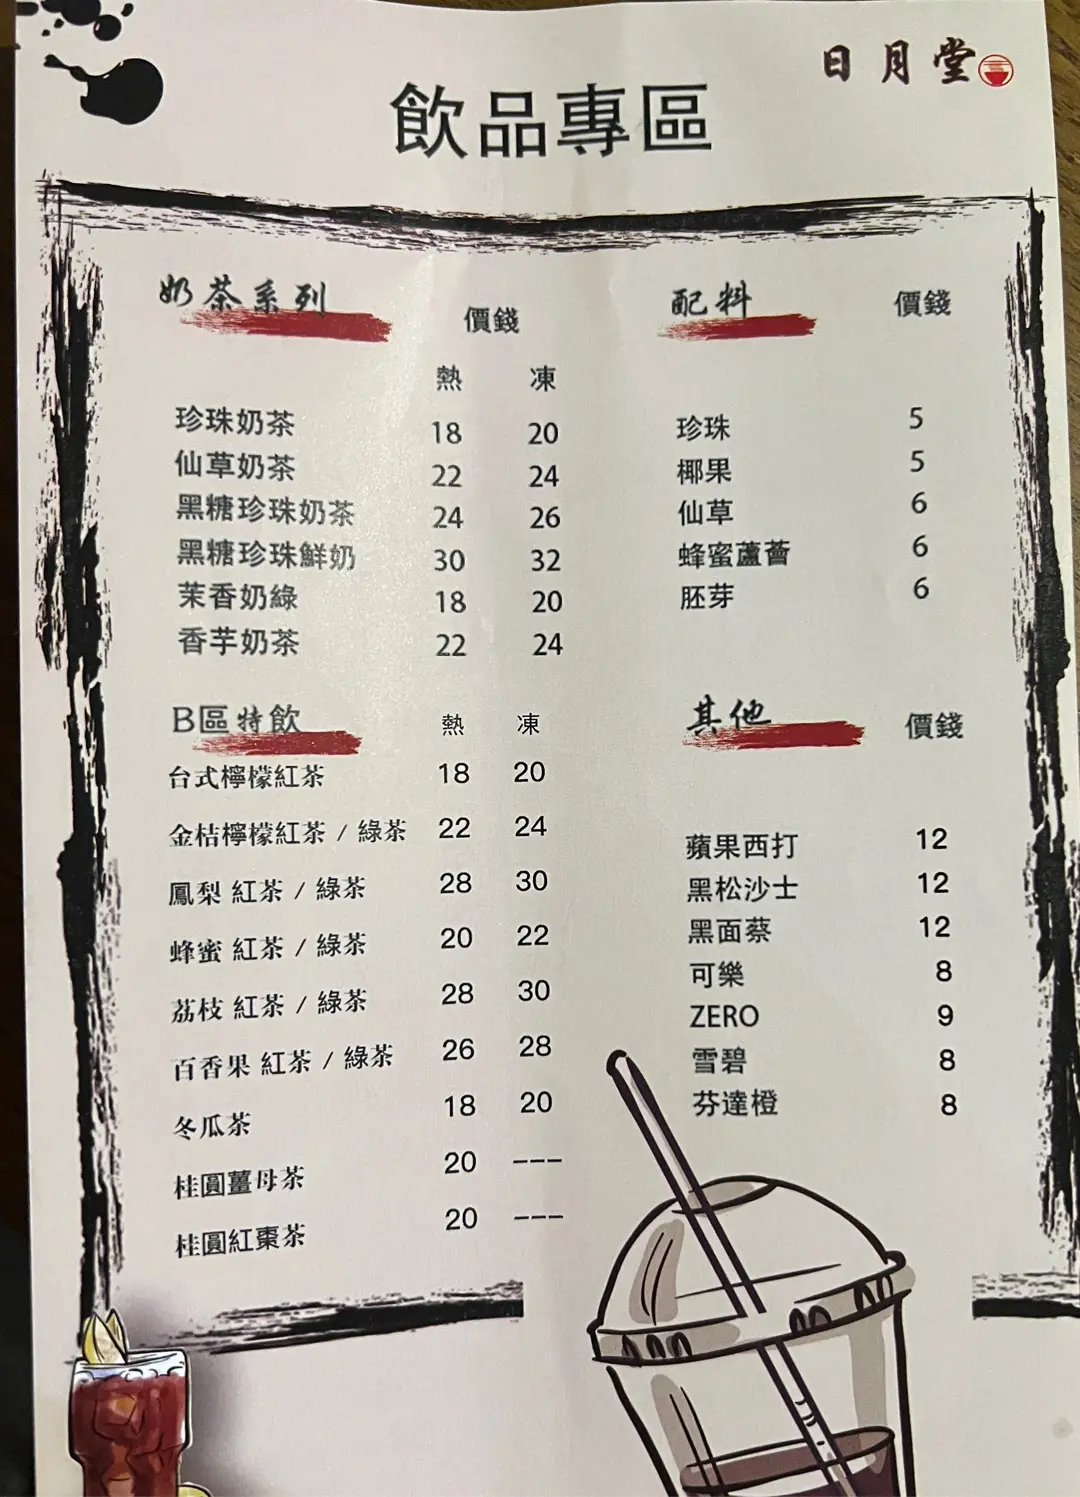 日月堂
飲品專區
奶茶系列 價錢
熱 凍
珍珠奶茶 18 20
仙草奶茶 22 24
黑糖珍珠奶茶 24 26
黑糖珍珠鮮奶 30 32
茉香奶綠 18 20
香芋奶茶 22 24
配料 價錢
珍珠 5
椰果 5
仙草 6
蜂蜜蘆薈 6
胚芽 6
B區特飲 熱 凍
台式檸檬紅茶 18 20
金桔檸檬紅茶 / 綠茶 22 24
鳳梨 紅茶 / 綠茶 28 30
蜂蜜 紅茶 / 綠茶 20 22
荔枝 紅茶 / 綠茶 28 30
百香果 紅茶 / 綠茶 26 28
冬瓜茶 18 20
桂圓薑母茶 20 ---
桂圓紅棗茶 20 ---
其他 價錢
蘋果西打 12
黑松沙士 12
黑面蔡 12
可樂 8
ZERO 9
雪碧 8
芬達橙 8